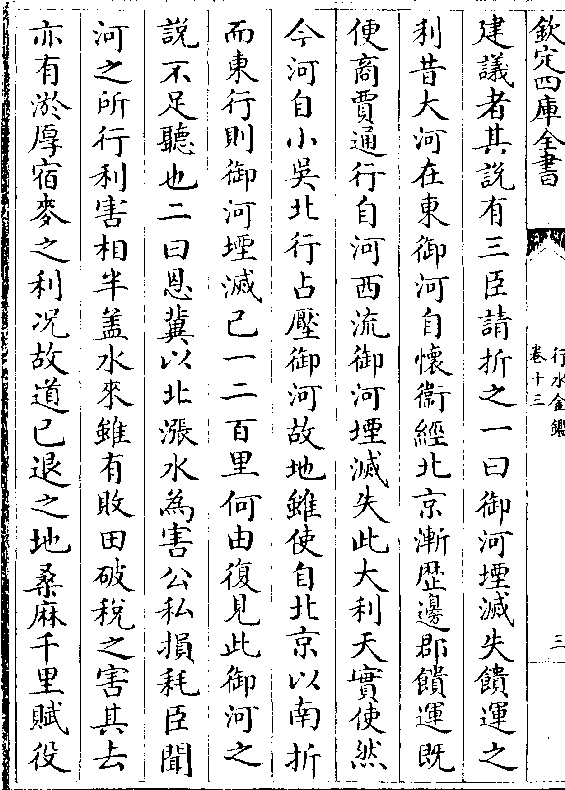 欽定四庫全書
行水金鑑
卷十三
三
建議者其說有三臣請折之一曰御河堙滅失饋運之
利昔大河在東御河自懷衞經北京漸歴邊郡饋運既
便商賈通行自河西流御河堙滅失此大利天實使然
今河自小吳北行占壓御河故地雖使自北京以南折
而東行則御河堙滅已一二百里何由復見此御河之
說不足聽也二曰恩冀以北漲水為害公私損耗臣聞
河之所行利害相半盖水來雖有敗田破稅之害其去
亦有淤厚宿麥之利况故道已退之地桑麻千里賦役